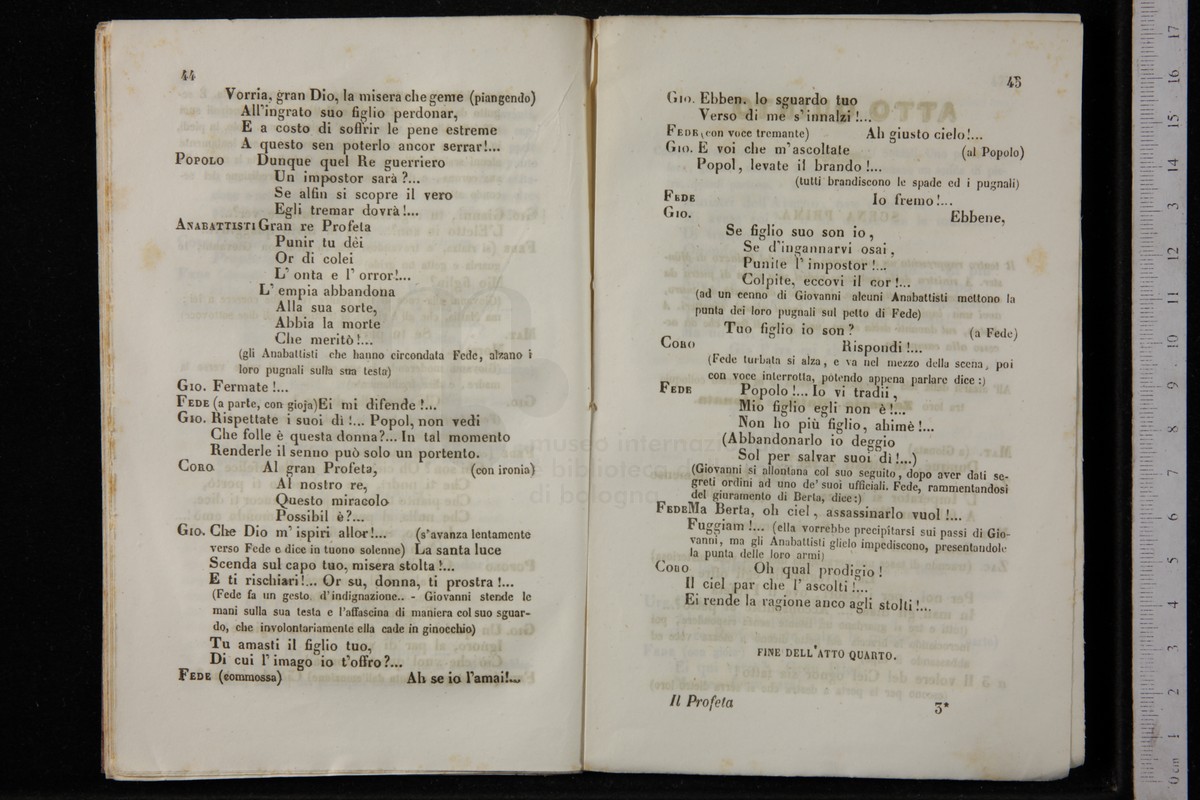 44
Vorria, gran Dio, la misera che geme (piangendo)
All'ingrato suo figlio perdonar,
E a costo di soffrir le pene estreme
A questo sen poterlo ancor serrar!...
POPOLO Dunque quel Re guerriero
Un impostor sarà ?...
Se alfin si scopre il vero
Egli tremar dovrà !...
ANABATTISTI Gran re Profeta
Punir tu dèi
Or di colei
L' onta e l' orror!...
L' empia abbandona
Alla sua sorte,
Abbia la morte
Che meritò !...
(gli Anabattisti che hanno circondata Fede, alzano i
loro pugnali sulla sua testa)
GIO. Fermate !...
FEDE (a parte, con gioja) Ei mi difende !...
GIO. Rispettate i suoi dì !... Popol, non vedi
Che folle è questa donna?... In tal momento
Renderle il senno può solo un portento.
CORO Al gran Profeta, (con ironia)
Al nostro re,
Questo miracolo
Possibil è ?...
GIO. Che Dio m' ispiri allor !... (s'avanza lentamente
verso Fede e dice in tuono solenne) La santa luce
Scenda sul capo tuo, misera stolta !...
E ti rischiari !... Or su, donna, ti prostra !...
(Fede fa un gesto d'indignazione.. - Giovanni stende le
mani sulla sua testa e l'affascina di maniera col suo sguar-
do, che involontariamente ella cade in ginocchio)
Tu amasti il figlio tuo,
Di cui l' imago io t'offro ?...
FEDE (commossa) Ah se io l'amai!...
45
GIO. Ebben. lo sguardo tuo
Verso di me s'innalzi !...
FEDE (con voce tremante) Ah giusto cielo!...
GIO. E voi che m'ascoltate (al Popolo)
Popol, levate il brando !...
(tutti brandiscono le spade ed i pugnali)
FEDE Io fremo !...
GIO. Ebbene,
Se figlio suo son io ,
Se d'ingannarvi osai ,
Punite l' impostor !...
Colpite, eccovi il cor !...
(ad un cenno di Giovanni alcuni Anabattisti mettono la
punta dei loro pugnali sul petto di Fede)
Tuo figlio io son ? (a Fede)
CORO Rispondi !...
(Fede turbata si alza , e va nel mezzo della scena, poi
con voce interrotta, potendo appena parlare dice :)
FEDE Popolo !... Io vi tradii ,
Mio figlio egli non è !...
Non ho più figlio, ahimè !...
(Abbandonarlo io deggio
Sol per salvar suoi dì !...)
(Giovanni si allontana col suo seguito, dopo aver dati se-
greti ordini ad uno de' suoi ufficiali. Fede, rammentandosi
del giuramento di Berta, dice :)
FEDE Ma Berta, oh ciel , assassinarlo vuol !...
Fuggiam !... (ella vorrebbe precipitarsi sui passi di Gio-
vanni, ma gli Anabattisti glielo impediscono, presentandole
la punta delle loro armi)
CORO Oh qual prodigio !
Il ciel par che l' ascolti !...
Ei rende la ragione anco agli stolti !...
FINE DELL'ATTO QUARTO.
Il Profeta 3*